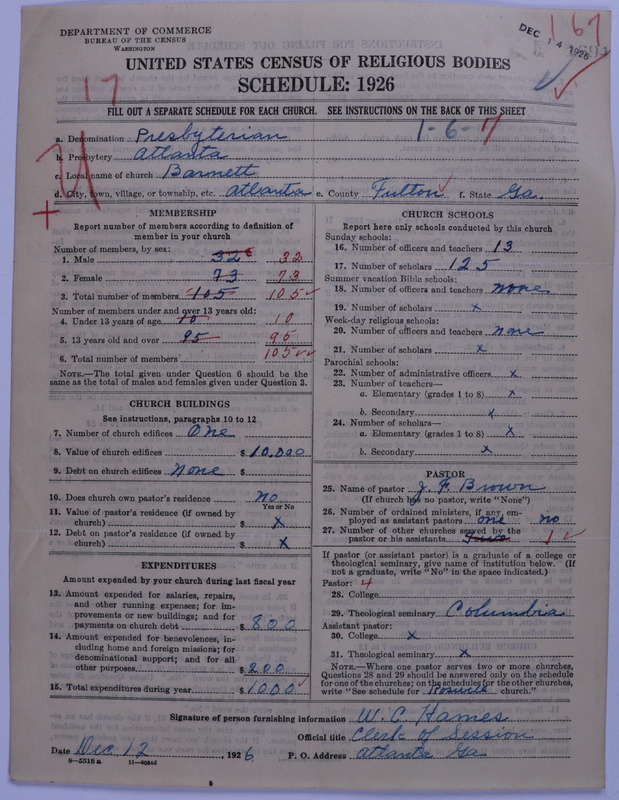 DEPARTMENT OF COMMERCE
BUREAU OF THE CENSUS
WASHINGTON
DEC 14 1926
167
UNITED STATES CENSUS OF RELIGIOUS BODIES
SCHEDULE: 1926
17
FILL OUT A SEPARATE SCHEDULE FOR EACH CHURCH. SEE INSTRUCTIONS ON THE BACK OF THIS SHEET
1-6-7
a. Denomination Presbyterian
b. Presbytery Atlanta
c. Local name of church Barnett
d. City, town, village, or township, etc. Atlanta e. County Fulton f. State Ga.
MEMBERSHIP
Report number of members according to definition of
member in your church
Number of members, by sex:
1. Male 32 32
2. Female 73 73
3. Total number of members 105 105
Number of members under and over 13 years old:
4. Under 13 years of age 10 10
5. 13 years old and over 95 95
6. Total number of members 105
NOTE.—The total given under Question 6 should be
same as the total of males and females given under Question 3.
CHURCH BUILDINGS
See instructions, paragraphs 10 to 12
7. Number of church edifices One
8. Value of church edifices $ 10,000
9. Debt on church edifices None $
10. Does church own pastor's residence No
Yes or No
11. Value of pastor's residence (if owned by
church) $ x
12. Debt on pastor's residence (if owned by
church) $ x
EXPENDITURES
Amount expended by your church during last fiscal year
13. Amount expended for salaries, repairs,
and other running expenses; for im-
provements or new buildings; and for
payments on church debt $ 800
14. Amount expended for benevolences, in-
cluding home and foreign missions; for
denominational support; and for all
other purposes $ 200
15. Total expenditures during year $ 1000
CHURCH SCHOOLS
Report here only schools conducted by this church
Sunday schools:
16. Number of officers and teachers 13
17. Number of scholars 125
Summer vacation Bible schools:
18. Number of officers and teachers none
19. Number of scholars x
Week-day religious schools:
20. Number of officers and teachers none
21. Number of scholars x
Parochial schools:
22. Number of administrative officers x
23. Number of teachers—
a. Elementary (grades 1 to 8) x
b. Secondary x
24. Number of scholars—
a. Elementary (grades 1 to 8) x
b. Secondary x
PASTOR
25. Name of pastor J. F. Brown
(If church has no pastor, write "None")
26. Number of ordained ministers, if any, em-
ployed as assistant pastors one no
27. Number of other churches served by the
pastor or his assistants 1
If pastor (or assistant pastor) is a graduate of a college or
theological seminary, give name of institution below. (If
not a graduate, write "No" in the space indicated.)
Pastor: 4
28. College
29. Theological seminary Columbia
Assistant pastor:
30. College x
31. Theological seminary x
NOTE.—Where one pastor serves two or more churches,
Questions 28 and 29 should be answered only on the schedule
for one of the churches; on the schedules for the other churches,
write "See schedule for church."
Signature of person furnishing information W. C. Hames
Official title Clerk of Session
Date Dec 12, 1926 P. O. Address Atlanta Ga
8-5518a